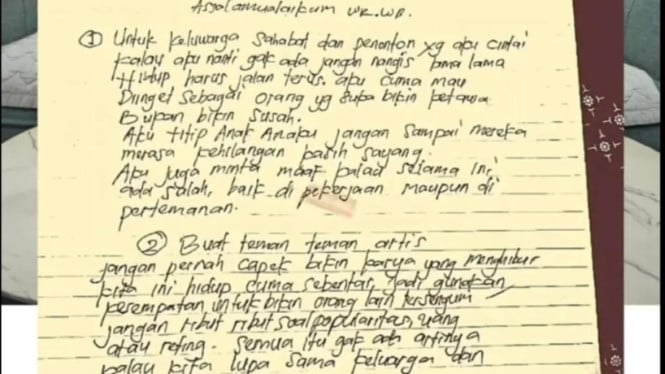 Assalamualaikum WR.WB.
① Untuk keluwarga sahabat dan penonton yg aku cintai
kalau aku nanti gak ada jangan nangis lama lama
Hidup harus jalan terus. aku cuma mau
Diinget sebagai orang yg suka bikin ketawa
Bukan bikin susah.
Aku titip Anak Anaku jangan sampai mereka
merasa kehilangan kasih sayang.
Aku juga minta maaf kalau selama ini
ada salah, baik di pekerjaan maupun di
pertemanan.
② Buat teman teman artis
jangan pernah capek bikin karya yang menghibur
kita ini hidup cuma sebentar, jadi gunakan
kesempatan untuk bikin orang lain tersenyum
jangan ribut ribut soal popularitas, uang
atau reting. Semua itu gak ada artinya
kalau kita lupa sama keluarga dan